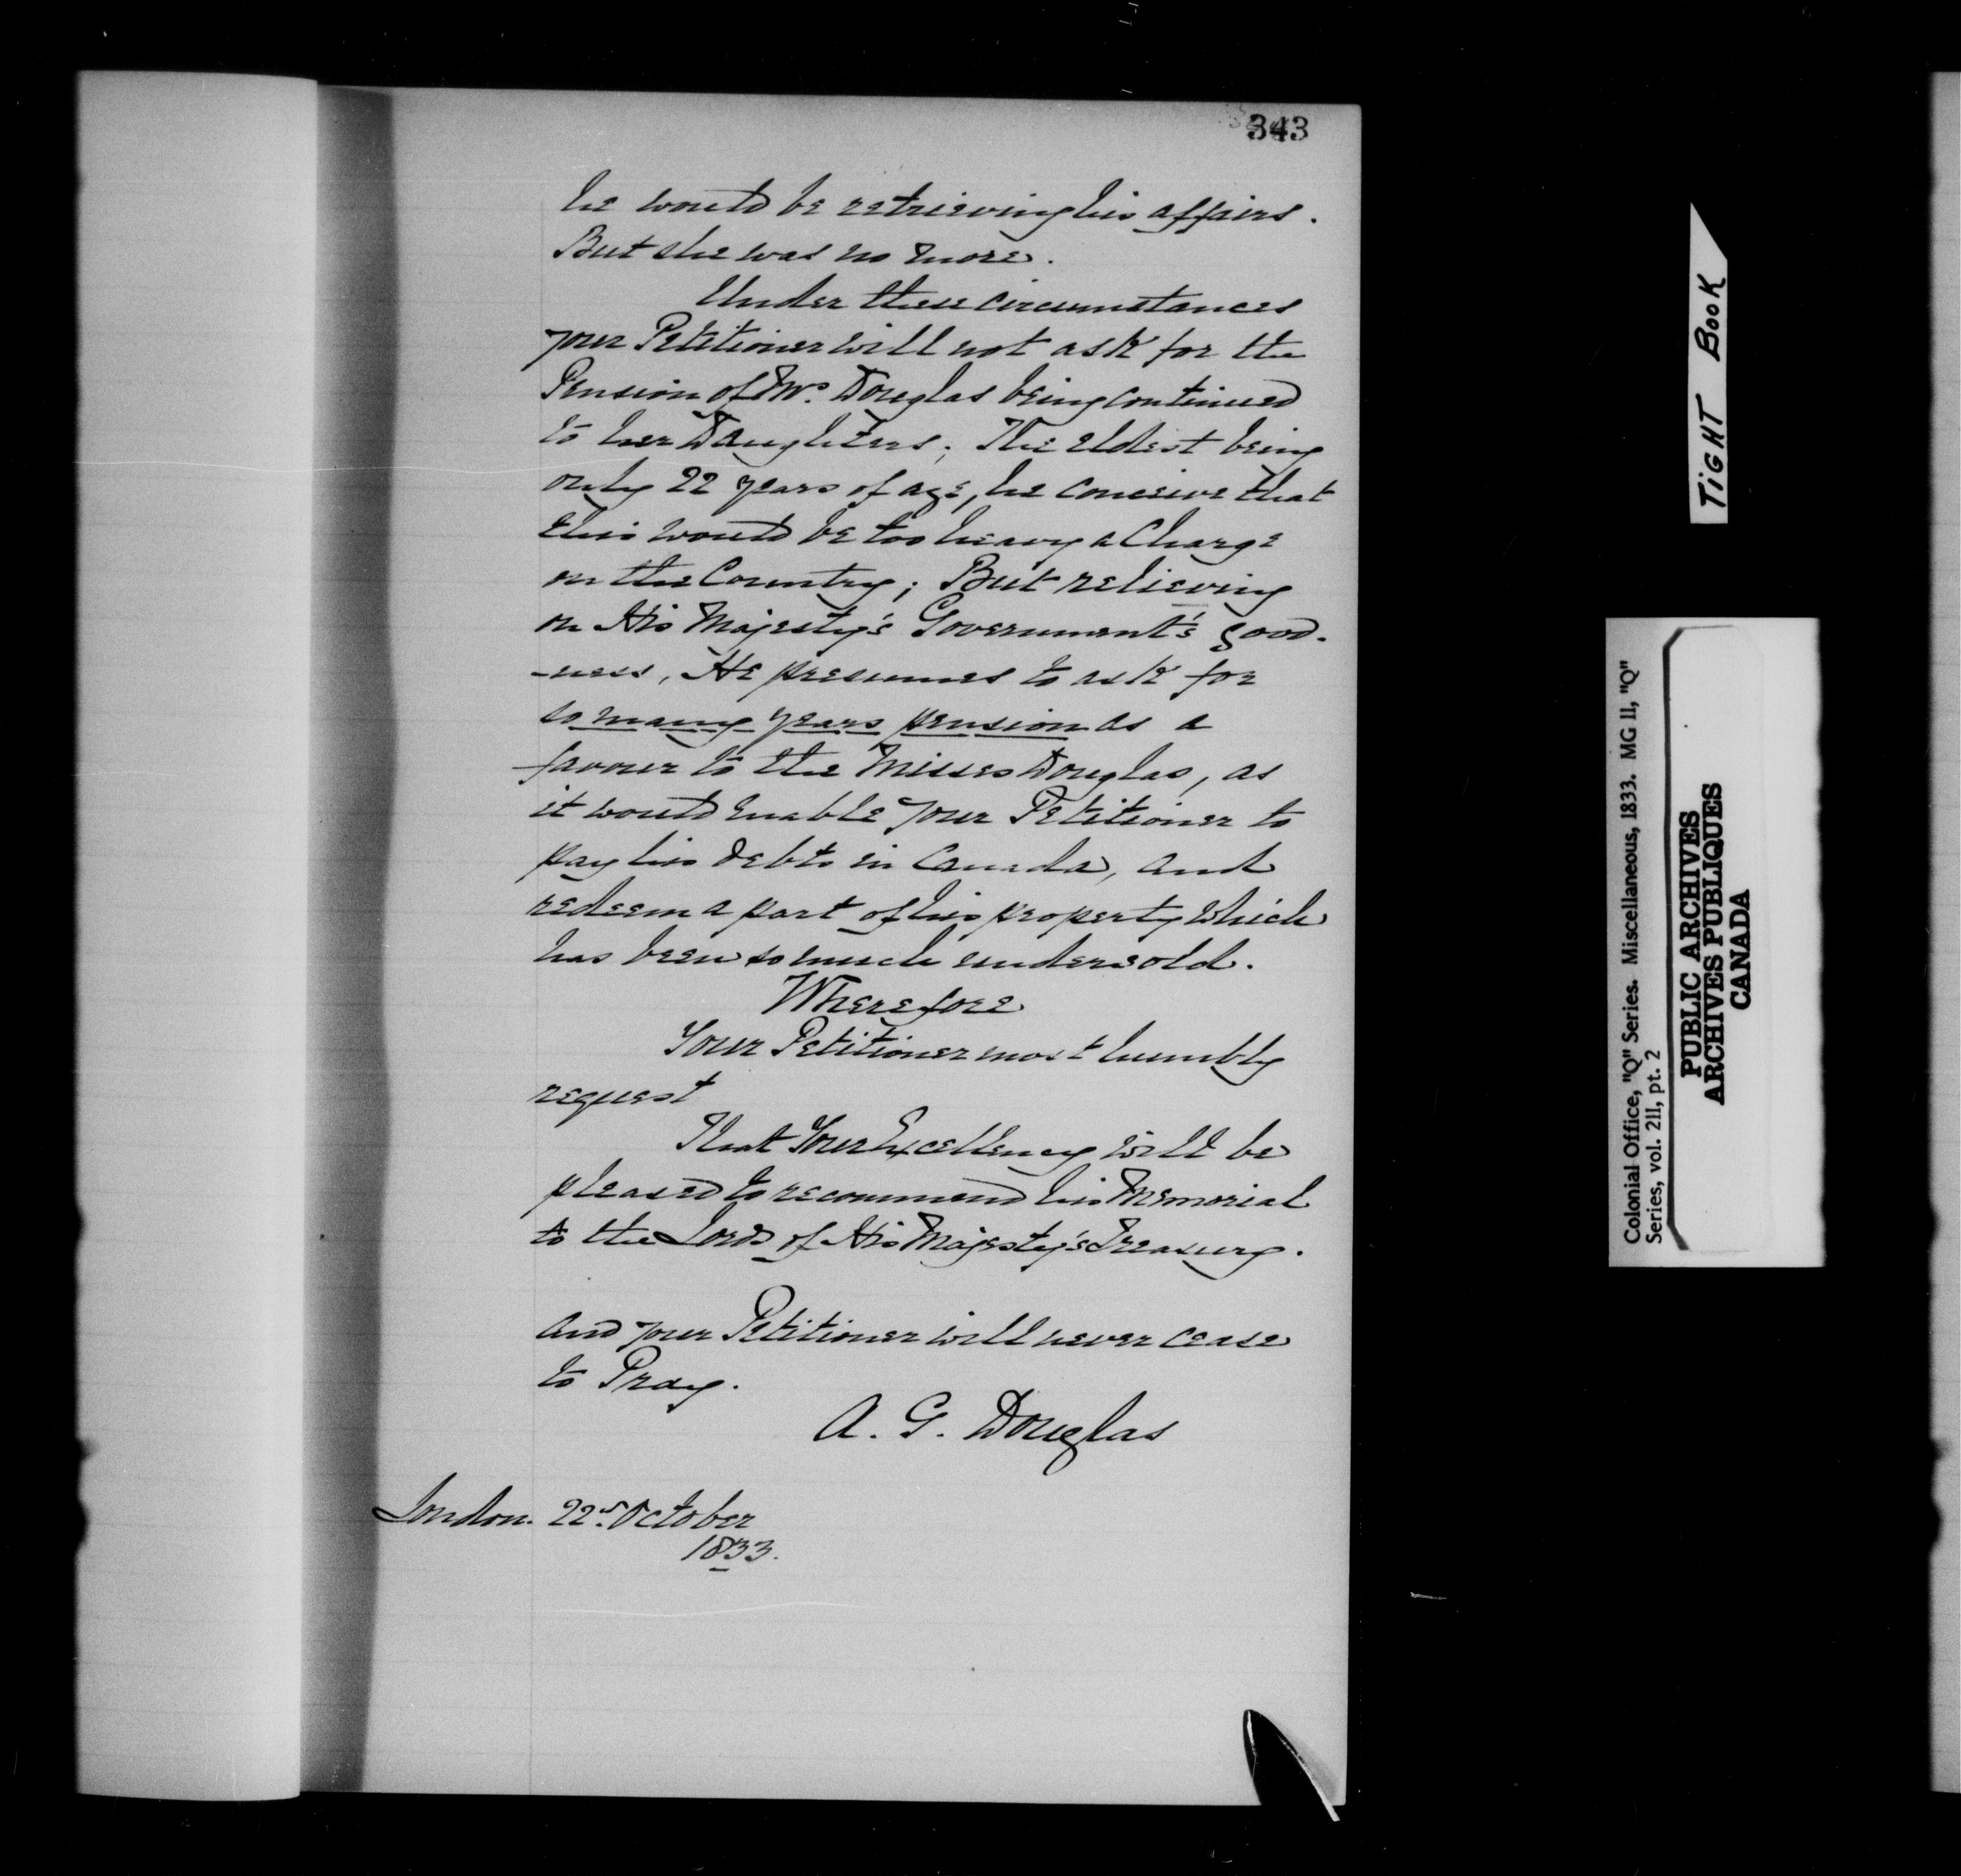 343
he would be retrieving his affairs.
But she was no more.
Under these circumstances
your Petitioner will not ask for the
Pension of Mrs. Douglas being continued
to her Daughters; The eldest being
only 22 years of age, he conceive that
this would be too heavy a Charge
on the Country; But relieving
on His Majesty's Government's good-
-ness, He presumes to ask for
so many years pension as a
favour to the Misses Douglas, as
it would enable your Petitioner to
pay his debts in Canada, and
redeem a part of his property which
has been so much undersold.
Wherefore
Your Petitioner most humbly
request
That Your Excellency will be
pleased to recommend his Memorial
to the Lords of His Majesty's Treasury.
And your Petitioner will never cease
to Pray.
A. G. Douglas
London. 22d October
1833.
TIGHT BOOK
Colonial Office, "Q" Series. Miscellaneous, 1833. MG 11, "Q"
Series, vol. 211, pt. 2
PUBLIC ARCHIVES
ARCHIVES PUBLIQUES
CANADA